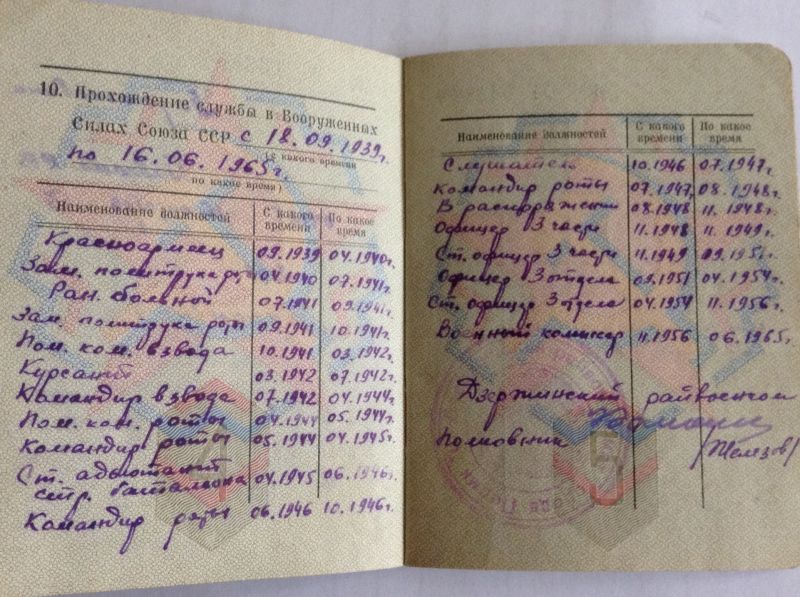 10. Прохождение службы в Вооруженных
Силах Союза ССР с 18.09.1939г.
(с какого времени
по 16.06.1965г.
по какое время)
Наименование должностей С какого времени По какое время
Красноармеец 09.1939 04.1940г.
Зам. политрука роты 04.1940 07.1941г.
Ран. больной 07.1941 09.1941г.
Зам. политрука роты 09.1941 10.1941г.
Пом. ком. взвода 10.1941 03.1942г.
Курсант 03.1942 07.1942г.
Командир взвода 07.1942 04.1944г.
Пом. ком. роты 04.1944 05.1944г.
Командир роты 05.1944 04.1945г.
Ст. адъютант
стр. батальона 04.1945 06.1946г.
Командир роты 06.1946 10.1946г.
4
Наименование должностей С какого времени По какое время
Слушатель 10.1946 07.1947г.
Командир роты 07.1947 08.1948г.
В распоряжении 08.1948 11.1948г.
Офицер 3 части 11.1948 11.1949г.
Ст. офицер 3 части 11.1949 09.1951г.
Офицер 3 отдела 09.1951 04.1954г.
Ст. офицер 3 отдела 04.1954 11.1956г.
Военный комиссар 11.1956 06.1965г.
Дзержинский райвоенком
полковник /Железов/
5